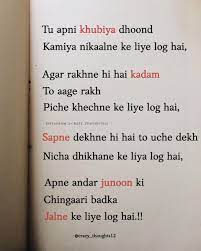 Tu apni khubiya dhoond
Kamiya nikaalne ke liye log hai,
Agar rakhne hi hai kadam
To aage rakh
Piche khechne ke liye log hai,
Sapne dekhne hi hai to uche dekh
Nicha dhikhane ke liya log hai,
Apne andar junoon ki
Chingaari badka
Jalne ke liye log hai.!!
@crazy_thoughts12